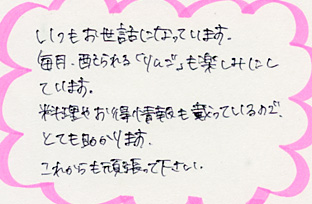 いつもお世話になっています。
毎月、配られる「りんご」も楽しみにし
ています。
料理やお得情報も載っているので、
とても助かります。
これからも頑張って下さい。